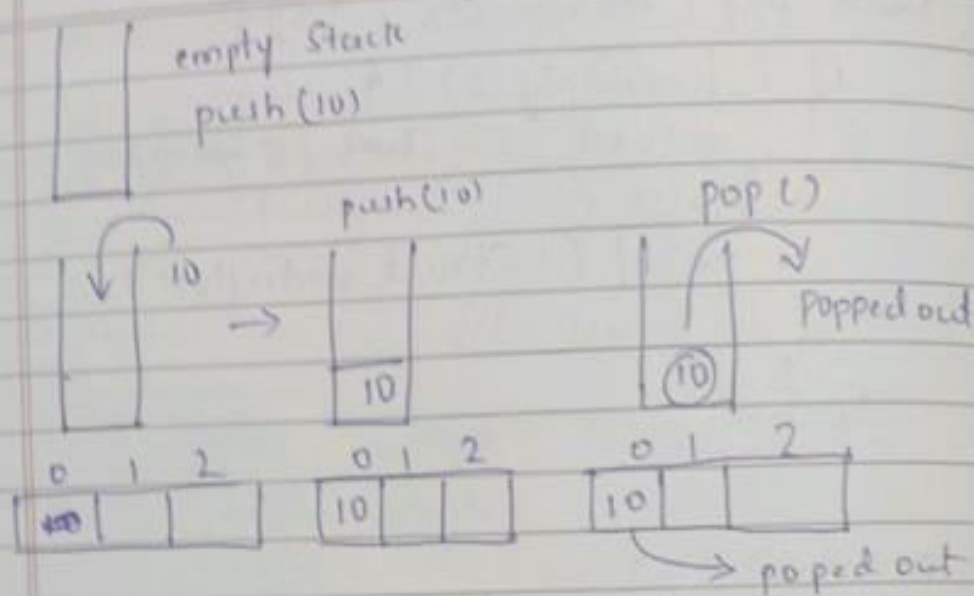 empty Stack
push (10)
push(10)
pop ()
10
popped out
10
10
0 1 2
0 1 2
0 1 2
10
10
poped out